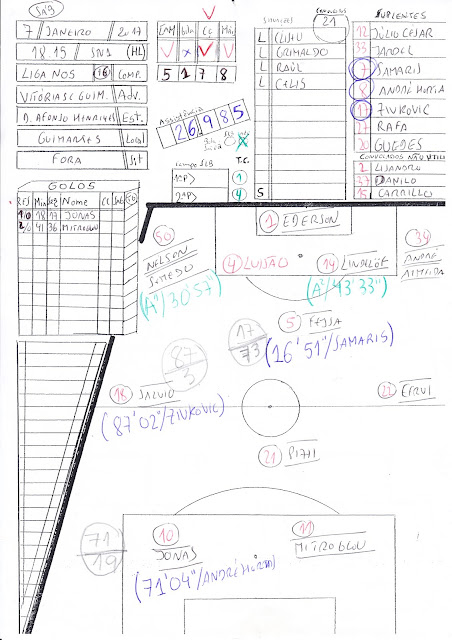 SAB
7 JANEIRO 2017
18 15 SN1 (HL)
LIGA NOS 16 COMP.
VITÓRIA SC GUIM. Adv.
D. AFONSO HENRIQUES Est.
GUIMARÃES Local
FORA Sit
5 1 7 8
Assistência
26985
Tempo SLB T.C.
1ªP 1
2ªP 4
CONVOCADOS
21
L CLISIU
L GRIMALDO
L RAÚL
L CALIS
5
SUPLENTES
12 JÚLIO CESAR
35 JARDEL
7 SAMARIS
8 ANDRÉ HORTA
17 ZIVKOVIC
27 RAFA
20 GUEDES
CONVOCADOS NÃO UTILI
2 LISANDRO
27 DANILO
15 CARRILLO
GOLOS
RES Min Seg Nome
1/0 18 17 JONAS
2/0 41 36 MITROGLOU
1 EDERSON
50 NELSON SEMEDO
(A"/30'57")
4 LUISÃO
14 LINDELÖF
(A"/43'33")
34 ANDRÉ ALMEIDA
5 FEJSA
(16'51"/SAMARIS)
17/73
87/3
18 SALVIO
(87'02"/ZIVKOVIC)
22 CERVI
21 PIZZI
71/19
10 JONAS
(71'04"/ANDRÉ HORTA)
11 MITROGLOU